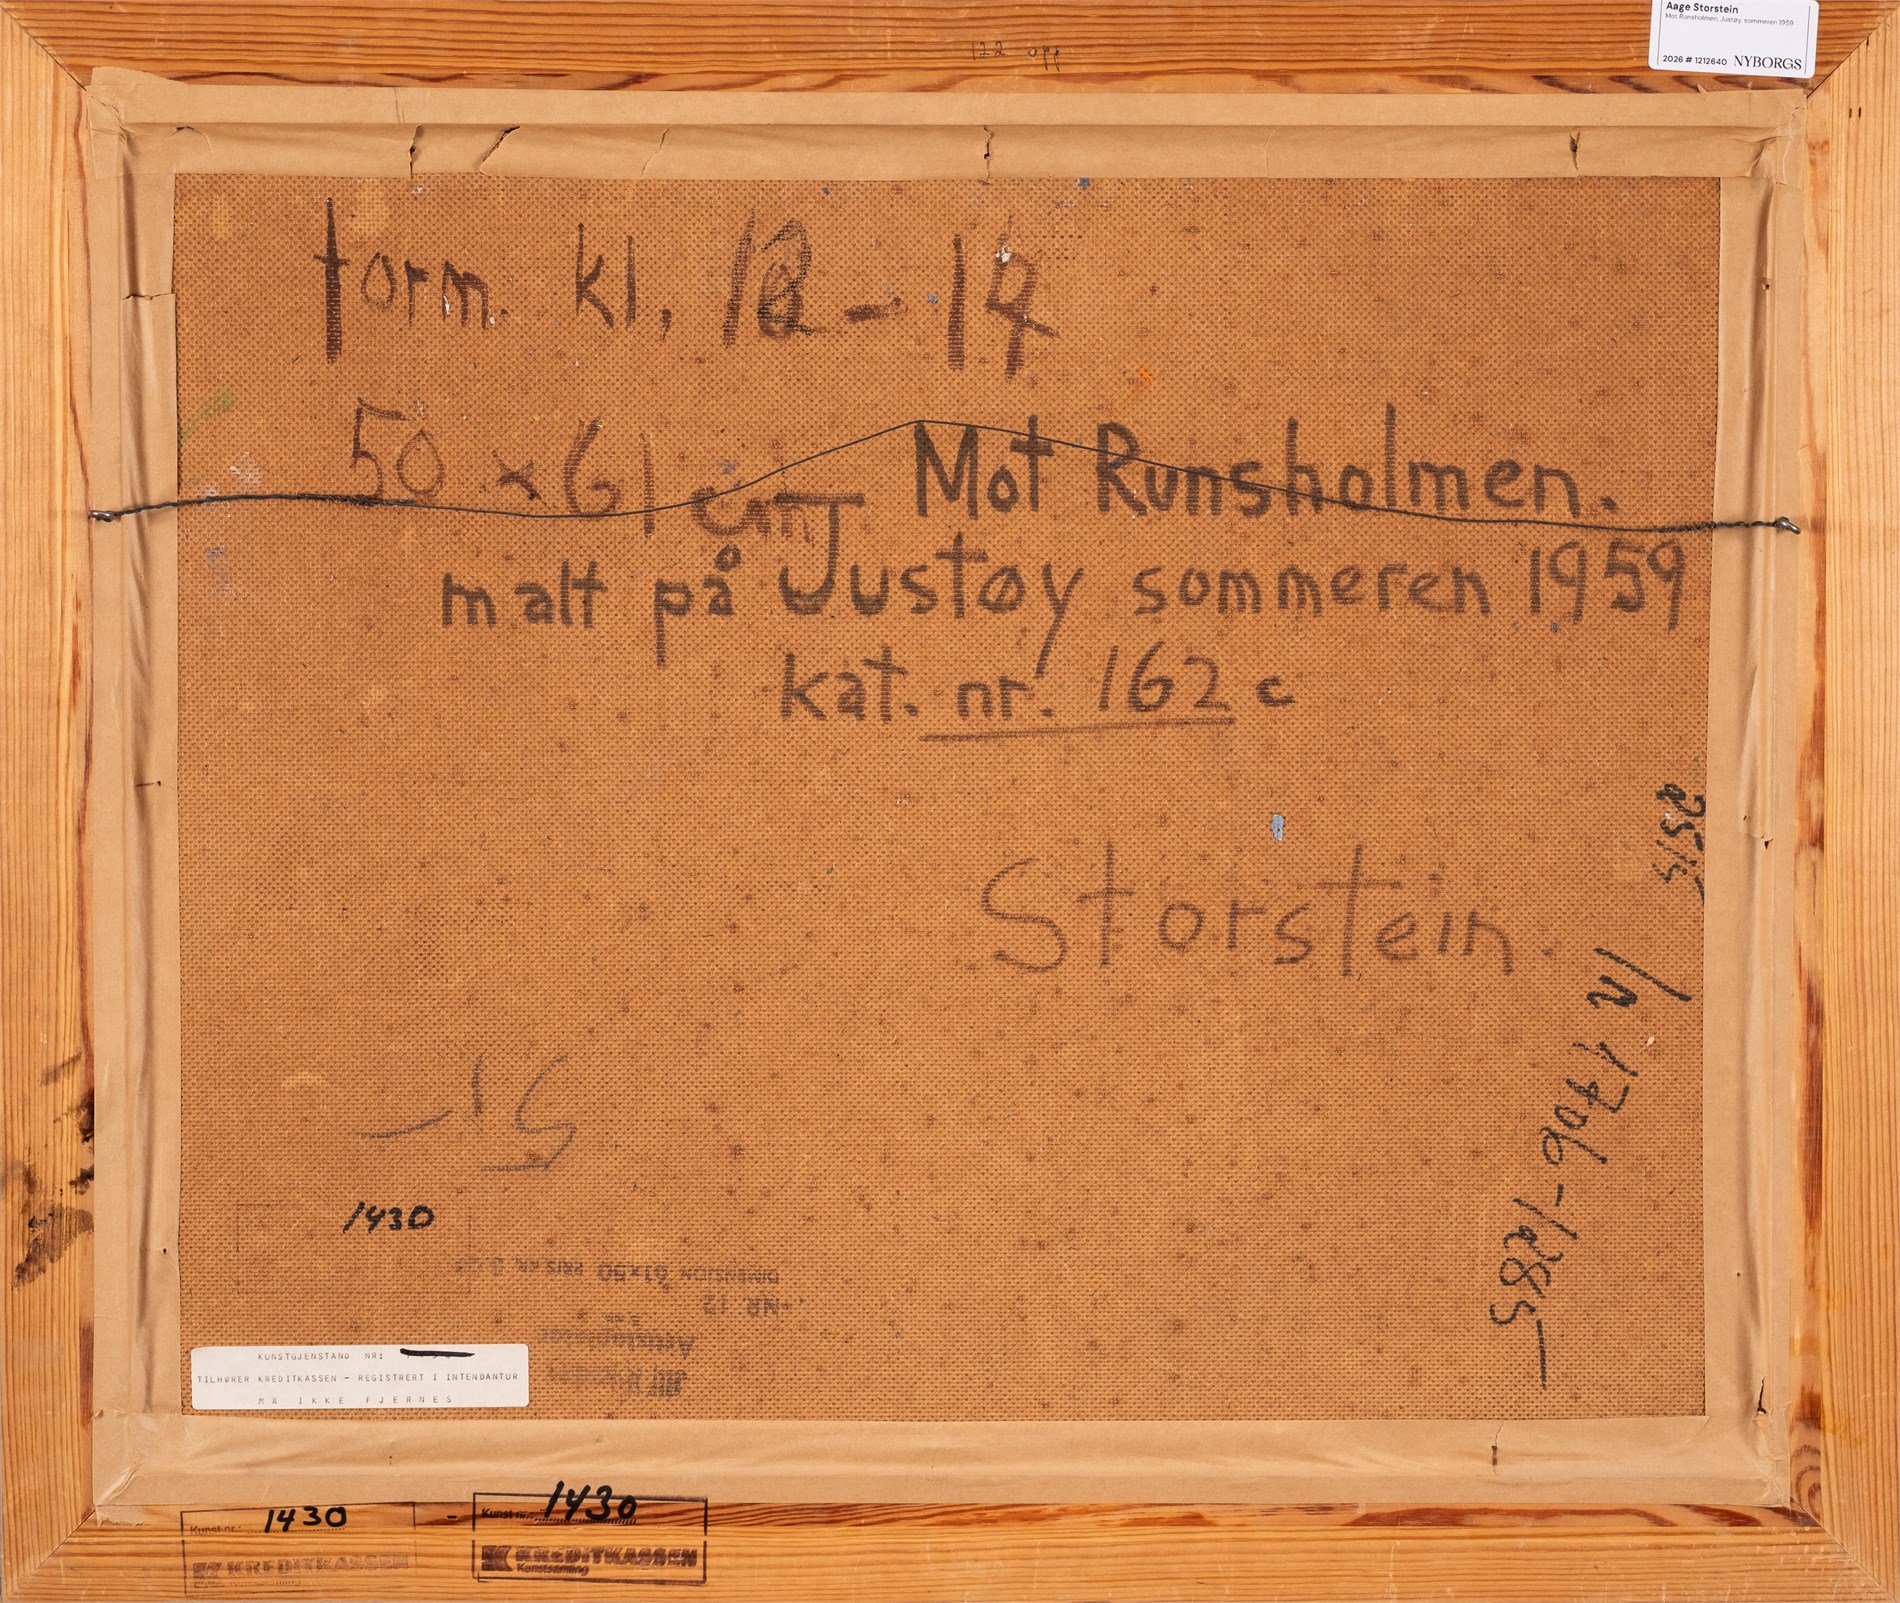 Aage Storstein
Mot Runsholmen, Justøy, sommeren 1959
2026 # 1212640 NYBORGS
122 opp
form. kl, 12 - 14
50 x 61 cm
Mot Runsholmen.
malt på Justøy sommeren 1959
kat. nr. 162 c
Storstein.
1430
DIMENSJON 61x50 PRIS KR.
NR. 12
KUNSTGJENSTAND NR:
TILHØRER KREDITKASSEN - REGISTRERT I INTENDANTUR
MÅ IKKE FJERNES
Kunst nr.: 1430
KREDITKASSEN
Kunst nr. 1430
KREDITKASSEN
Kunstsamling